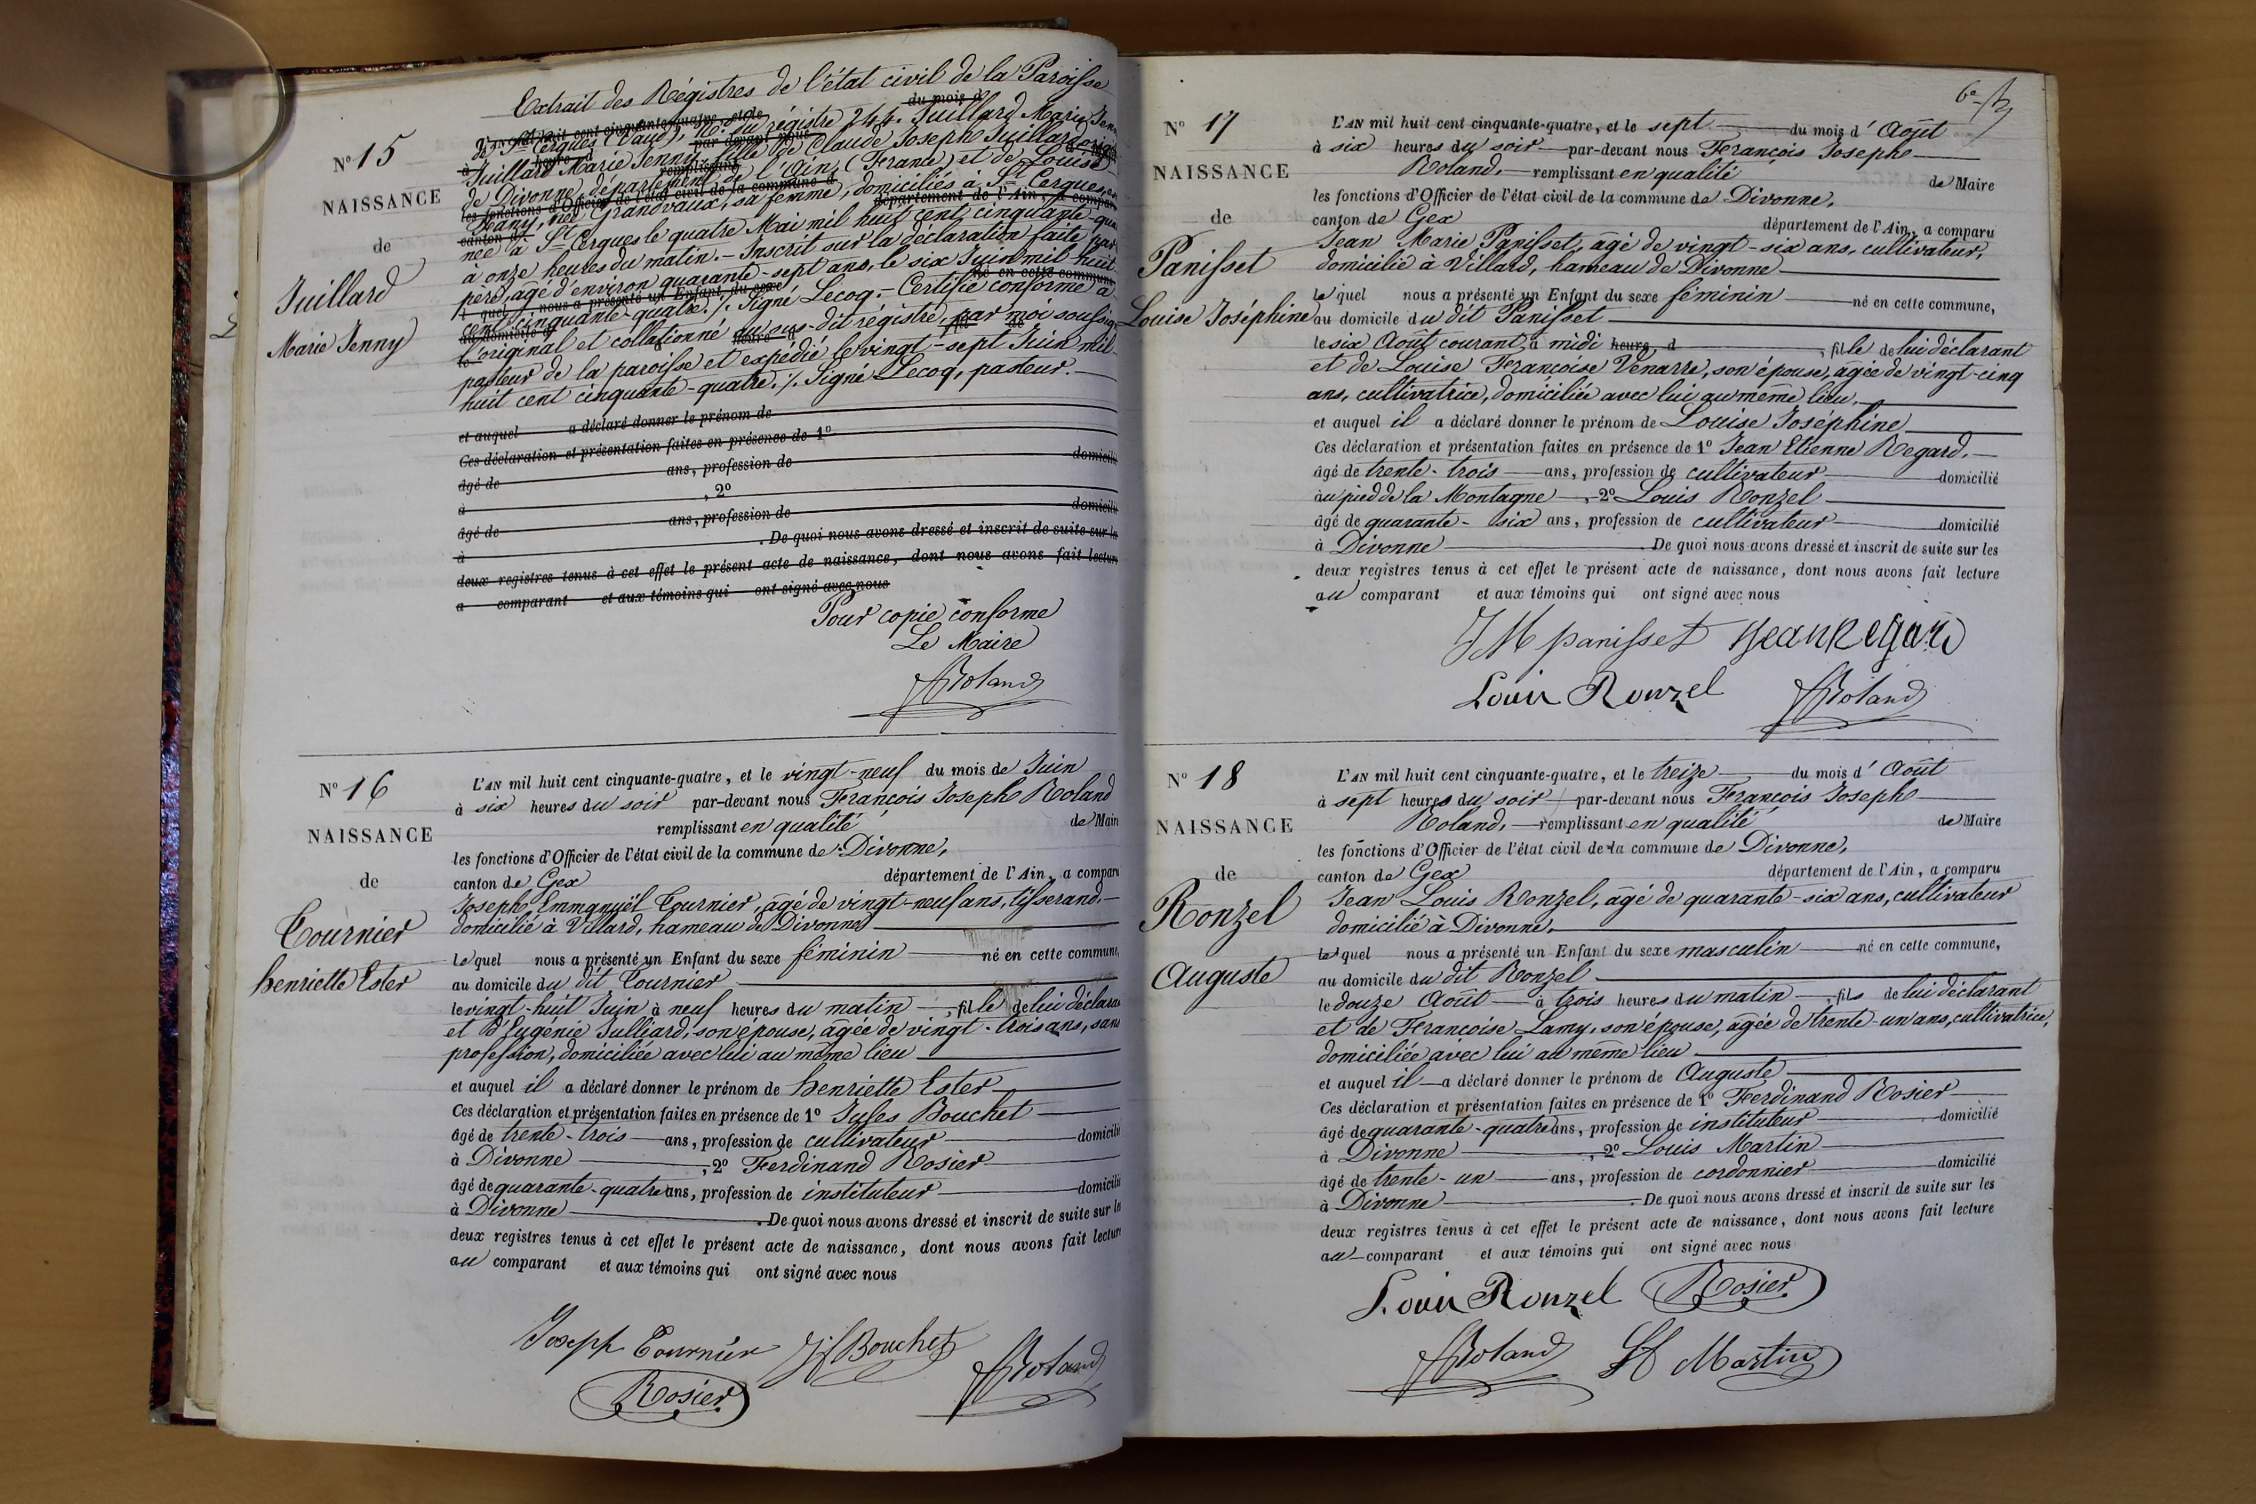 Extrait des Régistres de l'état civil de la Paroisse
N° 15
NAISSANCE
de
Juillard
Marie Jenny
de St Cergues (Vaud), N° du régistre 244. Juillard Marie Jenny
Juillard Marie Jenny, fille de Claude Joseph Juillard
de Divonne, département de l'Ain, (France) et de Louise
née Grandvaux, sa femme, domiciliés à St Cergues,
née à St Cergues le quatre Mai mil huit cent cinquante-qua
à onze heures du matin. - Inscrit sur la déclaration faite par
père, agé d'environ quarante-sept ans, le six Juin mil huit
cent cinquante-quatre. /. Signé Lecoq. - Certifié conforme à
l'original et collationné au sus-dit régistre, par moi soussig
pasteur de la paroisse et expédié le vingt-sept Juin mil
huit cent cinquante-quatre. /. Signé Lecoq, pasteur.
et auquel a déclaré donner le prénom de
Ces déclaration et présentation faites en présence de 1°
âgé de ans, profession de domicilié
à , 2°
âgé de ans, profession de domicilié
à . De quoi nous avons dressé et inscrit de suite sur le
deux registres tenus à cet effet le présent acte de naissance, dont nous avons fait lecture
a comparant et aux témoins qui ont signé avec nous
Pour copie conforme
Le Maire
Roland
N° 16
NAISSANCE
de
Tournier
henriette Ester
L'AN mil huit cent cinquante-quatre, et le vingt-neuf du mois de Juin
à six heures du soir par-devant nous François Joseph Roland
remplissant en qualité de Maire
les fonctions d'Officier de l'état civil de la commune de Divonne,
canton de Gex département de l'Ain, a comparu
Joseph Emmanuël Tournier, âgé de vingt-neuf ans, tisserand,
domicilié à Villard, hameau de Divonne
lequel nous a présenté un Enfant du sexe féminin né en cette commune,
au domicile du dit Tournier
le vingt-huit Juin à neuf heures du matin, fille de lui déclarant
et d'Eugénie Julliard, son épouse, âgée de vingt-trois ans, sans
profession, domiciliée avec lui au même lieu
et auquel il a déclaré donner le prénom de henriette Ester
Ces déclaration et présentation faites en présence de 1° Jules Bouchet
âgé de trente-trois ans, profession de cultivateur domicilié
à Divonne , 2° Ferdinand Rosier
âgé de quarante-quatre ans, profession de instituteur domicilié
à Divonne . De quoi nous avons dressé et inscrit de suite sur le
deux registres tenus à cet effet le présent acte de naissance, dont nous avons fait lecture
au comparant et aux témoins qui ont signé avec nous
Joseph Tournier Bouchet Roland
Rosier
6e
N° 17
NAISSANCE
de
Panisset
Louise Joséphine
L'AN mil huit cent cinquante-quatre, et le sept du mois d' Août
à six heures du soir par-devant nous François Joseph
Roland, remplissant en qualité de Maire
les fonctions d'Officier de l'état civil de la commune de Divonne,
canton de Gex département de l'Ain, a comparu
Jean Marie Panisset, âgé de vingt-six ans, cultivateur,
domicilié à Villard, hameau de Divonne
lequel nous a présenté un Enfant du sexe féminin né en cette commune,
au domicile du dit Panisset
le six Août courant, à midi heure d , fille de lui déclarant
et de Louise Françoise Venarre, son épouse, agée de vingt-cinq
ans, cultivatrice, domiciliée avec lui au même lieu
et auquel il a déclaré donner le prénom de Louise Joséphine
Ces déclaration et présentation faites en présence de 1° Jean Etienne Regard,
âgé de trente-trois ans, profession de cultivateur domicilié
au pied de la Montagne , 2° Louis Ronzel
âgé de quarante-six ans, profession de cultivateur domicilié
à Divonne . De quoi nous avons dressé et inscrit de suite sur les
deux registres tenus à cet effet le présent acte de naissance, dont nous avons fait lecture
au comparant et aux témoins qui ont signé avec nous
J M panisset Jean Regard
Louis Ronzel Roland
N° 18
NAISSANCE
de
Ronzel
Auguste
L'AN mil huit cent cinquante-quatre, et le treize du mois d' Août
à sept heures du soir par-devant nous François Joseph
Roland, remplissant en qualité de Maire
les fonctions d'Officier de l'état civil de la commune de Divonne,
canton de Gex département de l'Ain, a comparu
Jean Louis Ronzel, agé de quarante-six ans, cultivateur
domicilié à Divonne,
lequel nous a présenté un Enfant du sexe masculin né en cette commune,
au domicile du dit Ronzel
le douze Août à trois heures du matin, fils de lui déclarant
et de Françoise Lamy, son épouse, agée de trente-un ans, cultivatrice,
domiciliée avec lui au même lieu
et auquel il a déclaré donner le prénom de Auguste
Ces déclaration et présentation faites en présence de 1° Ferdinand Rosier
âgé de quarante-quatre ans, profession de instituteur domicilié
à Divonne , 2° Louis Martin
âgé de trente-un ans, profession de cordonnier domicilié
à Divonne . De quoi nous avons dressé et inscrit de suite sur les
deux registres tenus à cet effet le présent acte de naissance, dont nous avons fait lecture
au comparant et aux témoins qui ont signé avec nous
Louis Ronzel Rosier
Roland Martin